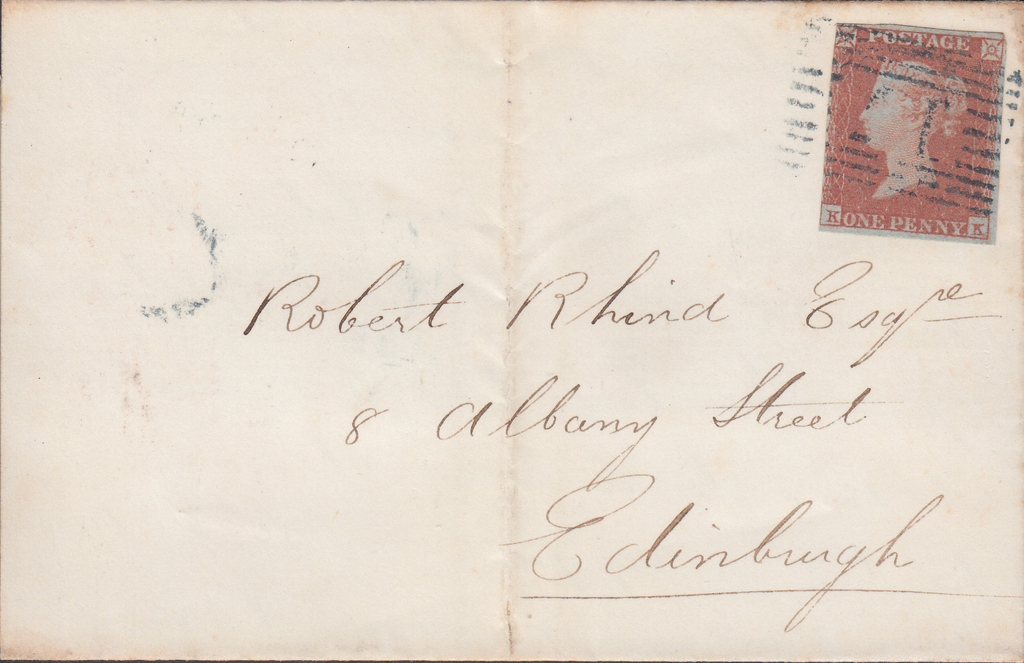 POSTAGE
K ONE PENNY. K
Robert Rhind Esqre
8 Albany Street
Edinburgh